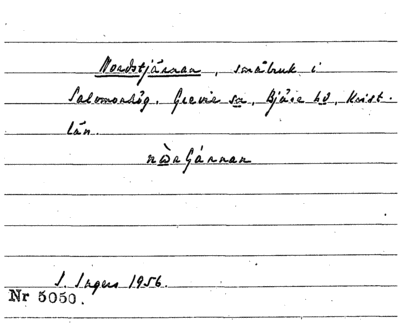 Nordstjärnan, småbruk i
Salomonhög. Grevie sn, Bjäre hd, Krist.
län.
S. Ingers 1956.
Nr 5050.